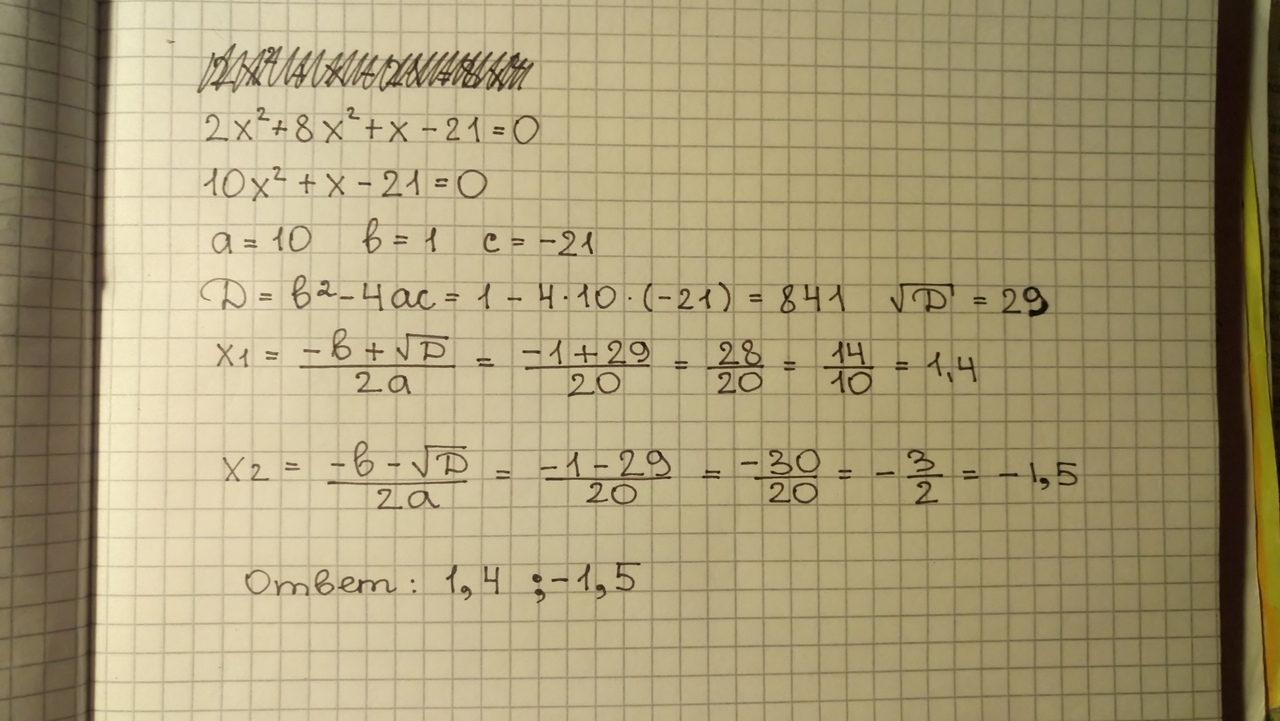 2x²+8x²+x-21=0
10x²+x-21=0
a=10 в=1 c=-21
D=в²-4ac=1-4·10·(-21)=841 √D=29
x1=(-в+√D)/2a=(-1+29)/20=28/20=14/10=1,4
x2=(-в-√D)/2a=(-1-29)/20=-30/20=-3/2=-1,5
Ответ: 1,4 ;-1,5